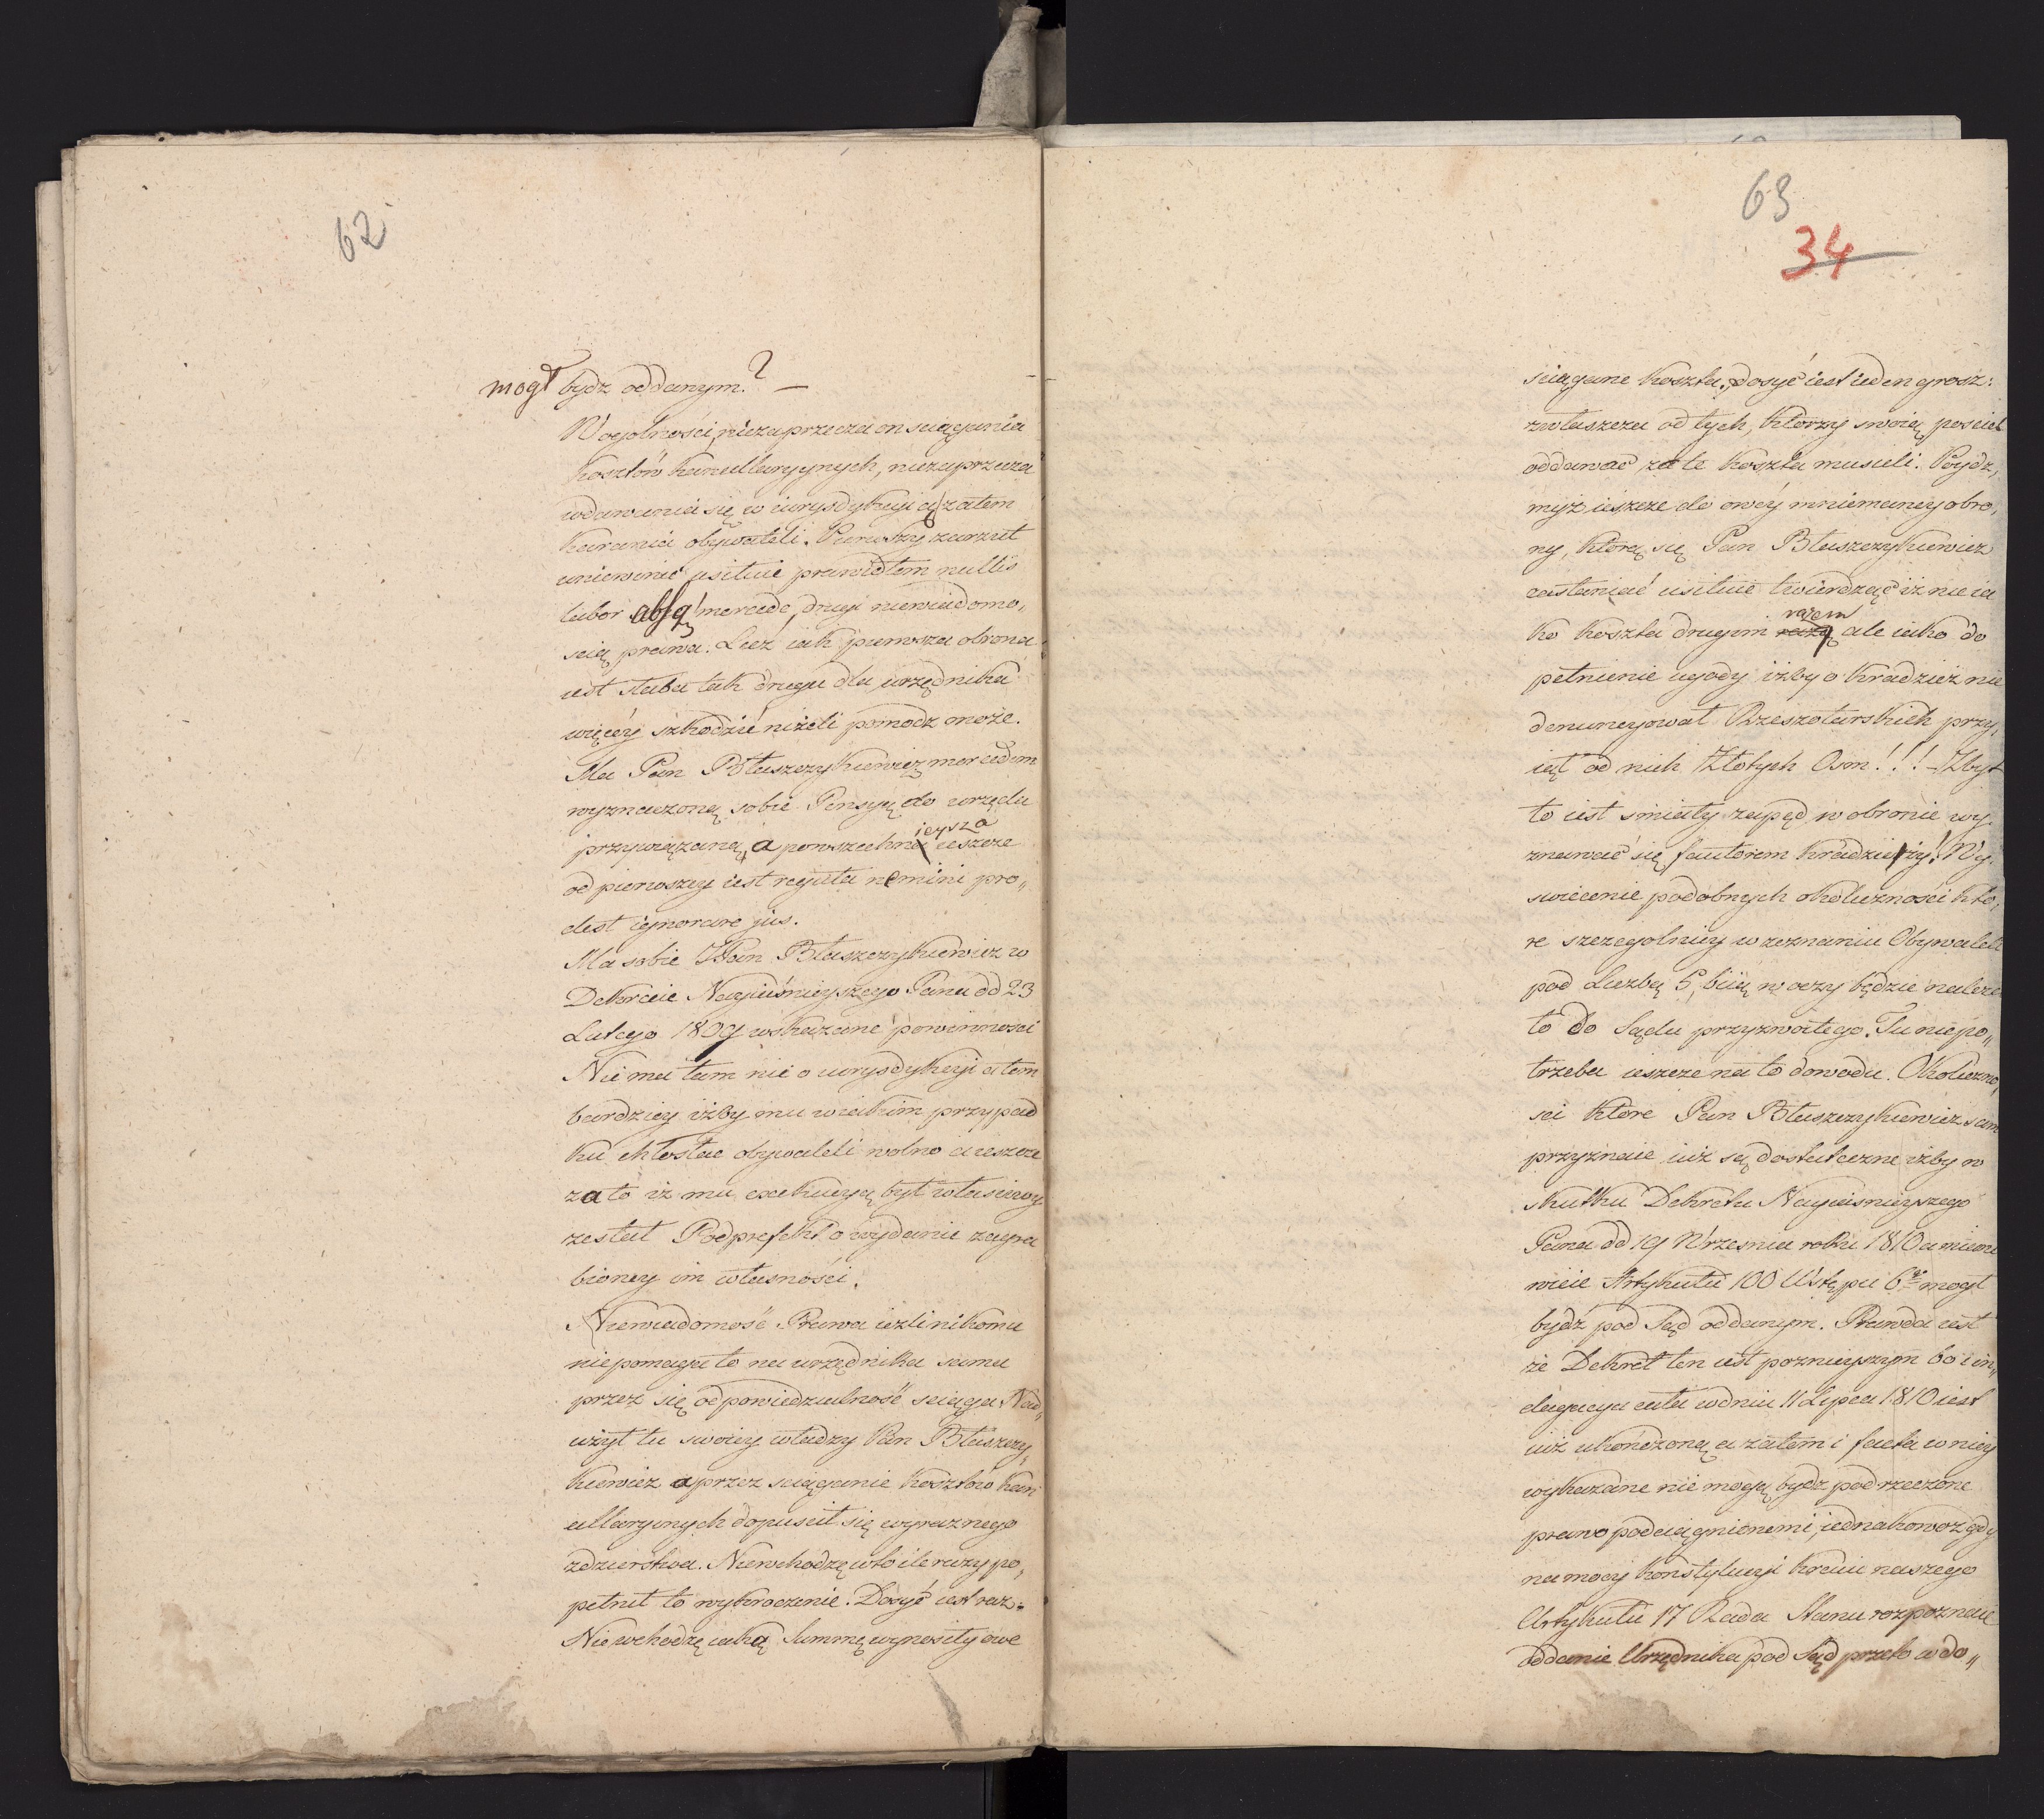 62
mogł bydz oddanym? —
W ogolności, niezaprzecza on sciągania
kosztow kancellaryynych, niezaprzecza
wdawania się w iurysdykcyi a zatem
karania obywateli. Pierwszy zarzut
uniewinic usiłuie prawidłem nullis
labor absq mercede, drugi niewiadomo„
scią prawa. Lecz iak pierwsza obrona
iest słaba tak druga dla urzędnika
więcéy szkodzić niżeli pomodz może.
Ma Pan Błaszczykiewicz mercedem
wyznaczoną sobie Pensyą do urzędu
przywiązaną, a powszechnieysza ieszcze
od pierwszey iest reguła nemini pro„
dest ignorare jus.
Ma sobie JPan Błaszczykiewicz w
Dekrecie Nayiaśnieyszego Pana dd 23
Lutego 1809 wskazane powinności
Nie ma tam nic o iurysdykcyi a tem
bardziey iżby mu w iakim przypad
ku chłostac obywateli wolno a ieszcze
za to iż mu exekucyą był
zesłał Podprefekt o wydanie zagra
bioney im własności.
Niewiadomość Prawa ieżli nikomu
niepomaga to na urzędnika sama
przez się odpowiedzialność sciąga. Nad„
użył tu swoiey władzy Pan Błaszczy„
kiewicz a przez sciąganie kosztów kan
cellaryinych dopuscił się wyraznego
zdzierstwa. Niewchodzę w to ile razy po„
pełnił to wykroczenie. Dosyć iest raz.
Nie wchodzę iaką Summę wynosiły owe
63
34
sciągane koszta; dosyć iest ieden grosz:
zwłaszcza od tych, ktorzy swoią posciel
oddawać za te koszta musieli. Poydz„
myż ieszcze do owéy mniemaney obro„
ny, którą się Pan Błaszczykiewicz
zasłaniać usiłuie twierdząc iż nie ia
ko koszta drugim razem ale iako do
pełnienie ugody iżby o kradzież nie
denuncyował Rzeszotarskich przy„
iął od nich Złotych Osm!!! – Zbyt
to iest smiały zapęd w obronie wy
znawać się fautorem kradzieży! Wy„
swiecenie podobnych okoliczności kto„
re szczegolniey w zeznaniu Obywateli
pod Liczbą 5, biią w oczy będzie należa
ło do Sądu przyzwoitego. Tu niepo„
trzeba ieszcze na to dowodu. Okoliczno„
sci które Pan Błaszczykiewicz sam
przyznaie iuż są dostateczne iżby w
skutku Dekretu Nayiasnieyszego
Pana dd 19 Września roku 1810 a miano
wicie Artykułu 100 Ustępu 6go mogł
bydź pod Sąd oddanym. Prawda iest
że Dekret ten iest poznieyszym bo in„
dagacya cała w dniu 11 Lipca 1810 iest
iuż ukończoną a zatem i facta w niey
wykazane nie mogą bydz pod rzeczone
prawo podciągnionemi, iednakowoz gdy
na mocy Konstytucyi kraiu naszego
Artykułu 17 Rada Stanu rozpoznaie
oddanie Urzędnika pod Sąd przeto w do„